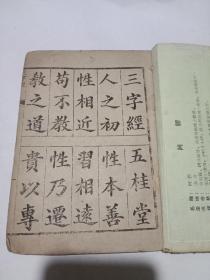 三字經 五桂堂
人之初 性本善
性相近 習相遠
苟不教 性乃遷
教之道 貴以專